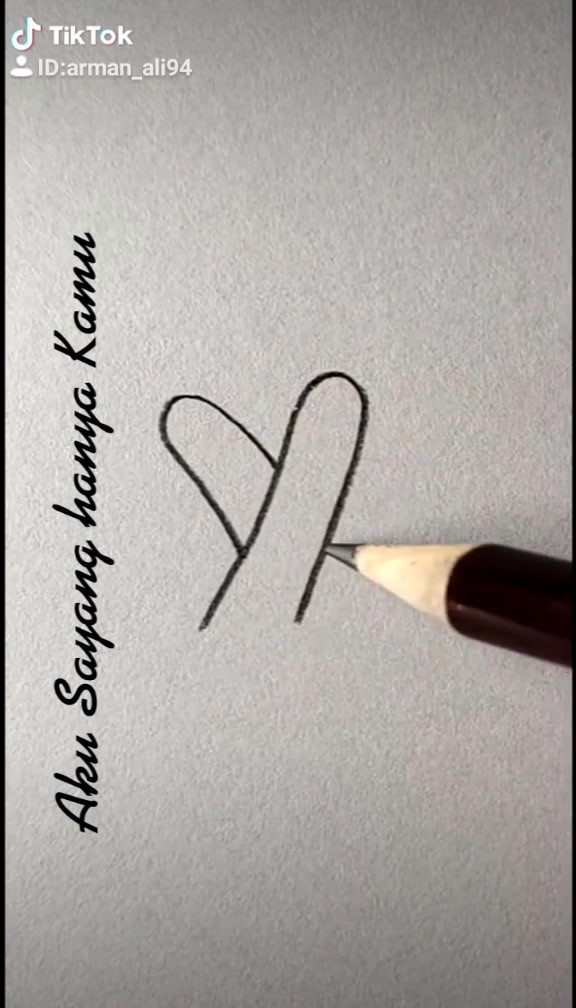 TikTok
ID:arman_ali94
Aku Sayang hanya Kamu